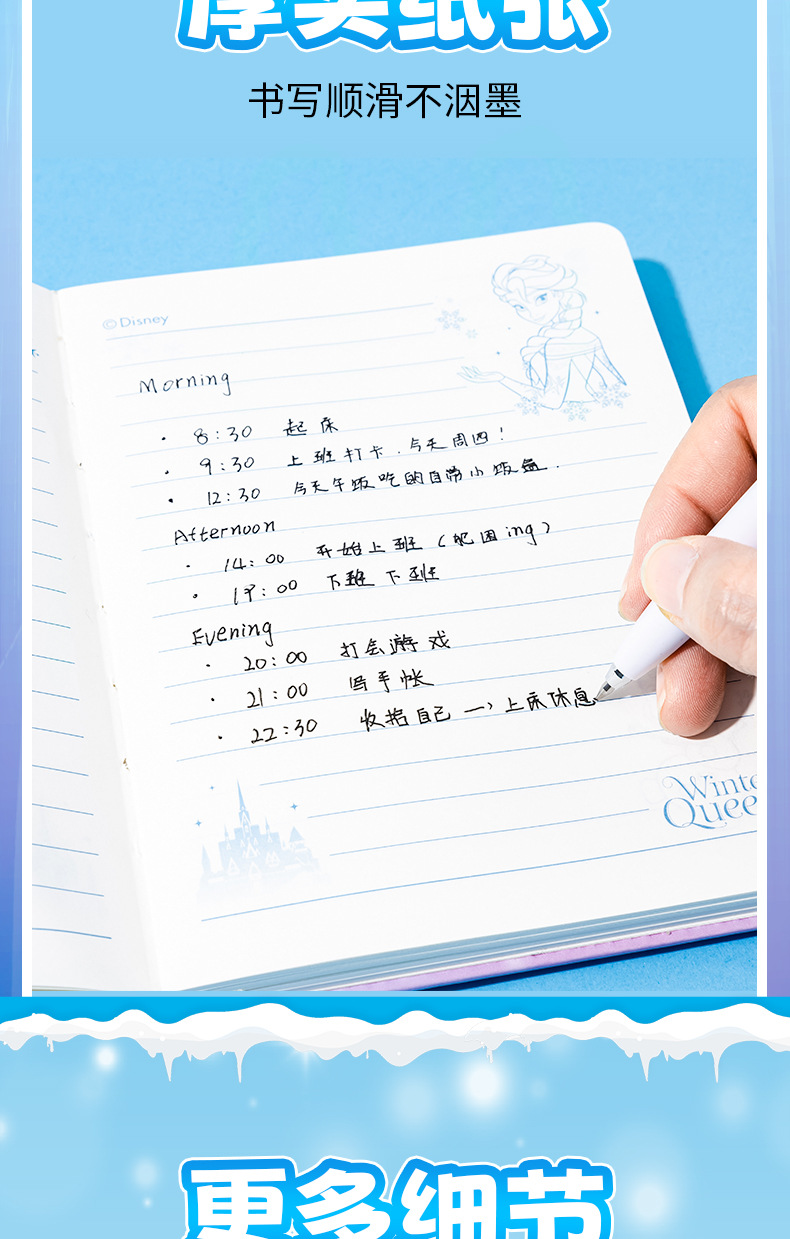 厚实纸张
书写顺滑不洇墨
©Disney
Morning
· 8:30 起床
· 9:30 上班打卡.今天周四!
· 12:30 今天午饭吃的自带小饭盒.
Afternoon
· 14:00 开始上班(肥困ing)
· 19:00 下班下班
Evening
· 20:00 打会游戏
· 21:00 写手帐
· 22:30 收拾自己一>上床休息
Winte
Quee
更多细节